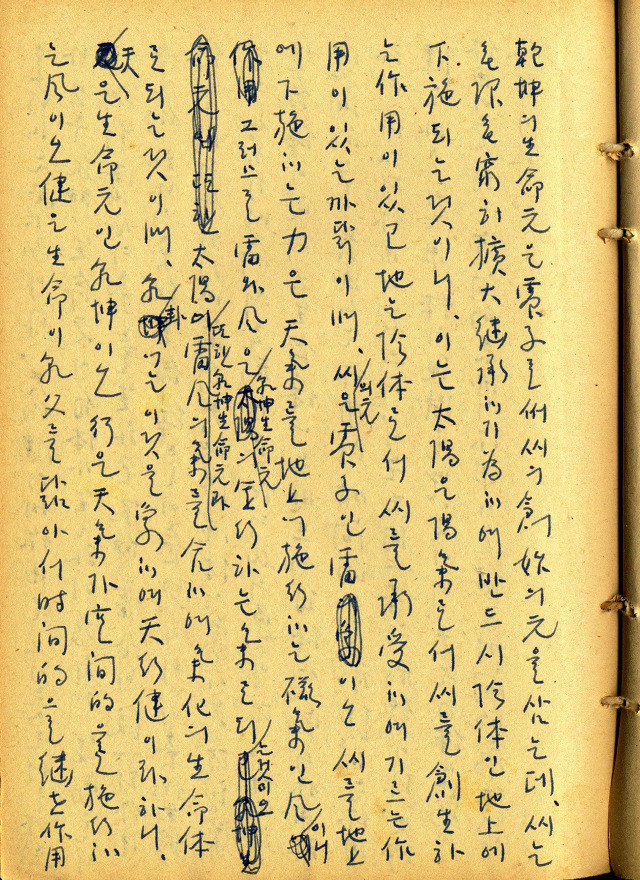 乾坤의 生命元은 震子로서 씨의 創始의 元을 삼는데, 씨는
를 窮히 擴大継承하기 為하여 반드시 陰体인 地上에
下施되는 것이니, 이는 太陽은 陽氣로서 씨를 創生하
는 作用이 있고 地는 陰体로서 씨를 承受하여 기르는 作
用이 있는 까닭이며, 씨의 元은 震子인 雷이오 씨를 地上
에 下施하는 力은 天氣를 地上에 施行하는 磁氣인 風이니
그러므로 雷와 風은 乾坤生命元의 行하는 氣로 되는 것이오
太陽이 雷風의 氣를 含하여 氣化의 生命体
로 되는 것이며, 乾卦에는 이것을 象하여 天行健이라 하니,
天은 生命元인 乾坤이오 行은 天氣가 空間的을 施行하
는 風이오 健은 生命이 乾父를 닮아서 时间的으로 継去作用